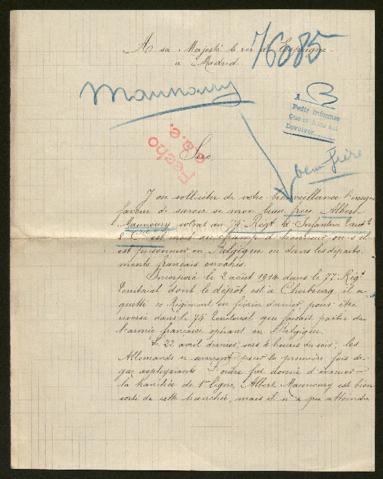 A sa Majesté le roi d'Espagne
à Madrid
76085
Mannoury
A B
Petit Informe
Fecho
beau frère
Sire
J'ai solliciter de votre bienveillance
faveur de savoir si mon beau frère Albert
Mannoury soldat au 75e Régt d'Infanterie
8e Cie est mort au champ d'honneur ou s'il
est prisonnier en Belgique ou dans les départe-
ments français envahis.
Incorporé le 2 août 1914 dans le 77e Régt
Territorial dont le dépôt est à Cherbourg, il a
quitté ce Régiment en février dernier pour être
versé dans 75 Territorial qui faisait partie de
l'armée française opérant en Belgique.
Le 22 avril dernier, vers 5 heures du soir, les
Allemands se servent pour la première fois de
gaz asphyxiants. L'ordre fut donné d'évacuer
la tranchée de 1re ligne, Albert Mannoury est bien
sorti de cette tranchée, mais il n'a pu atteindre